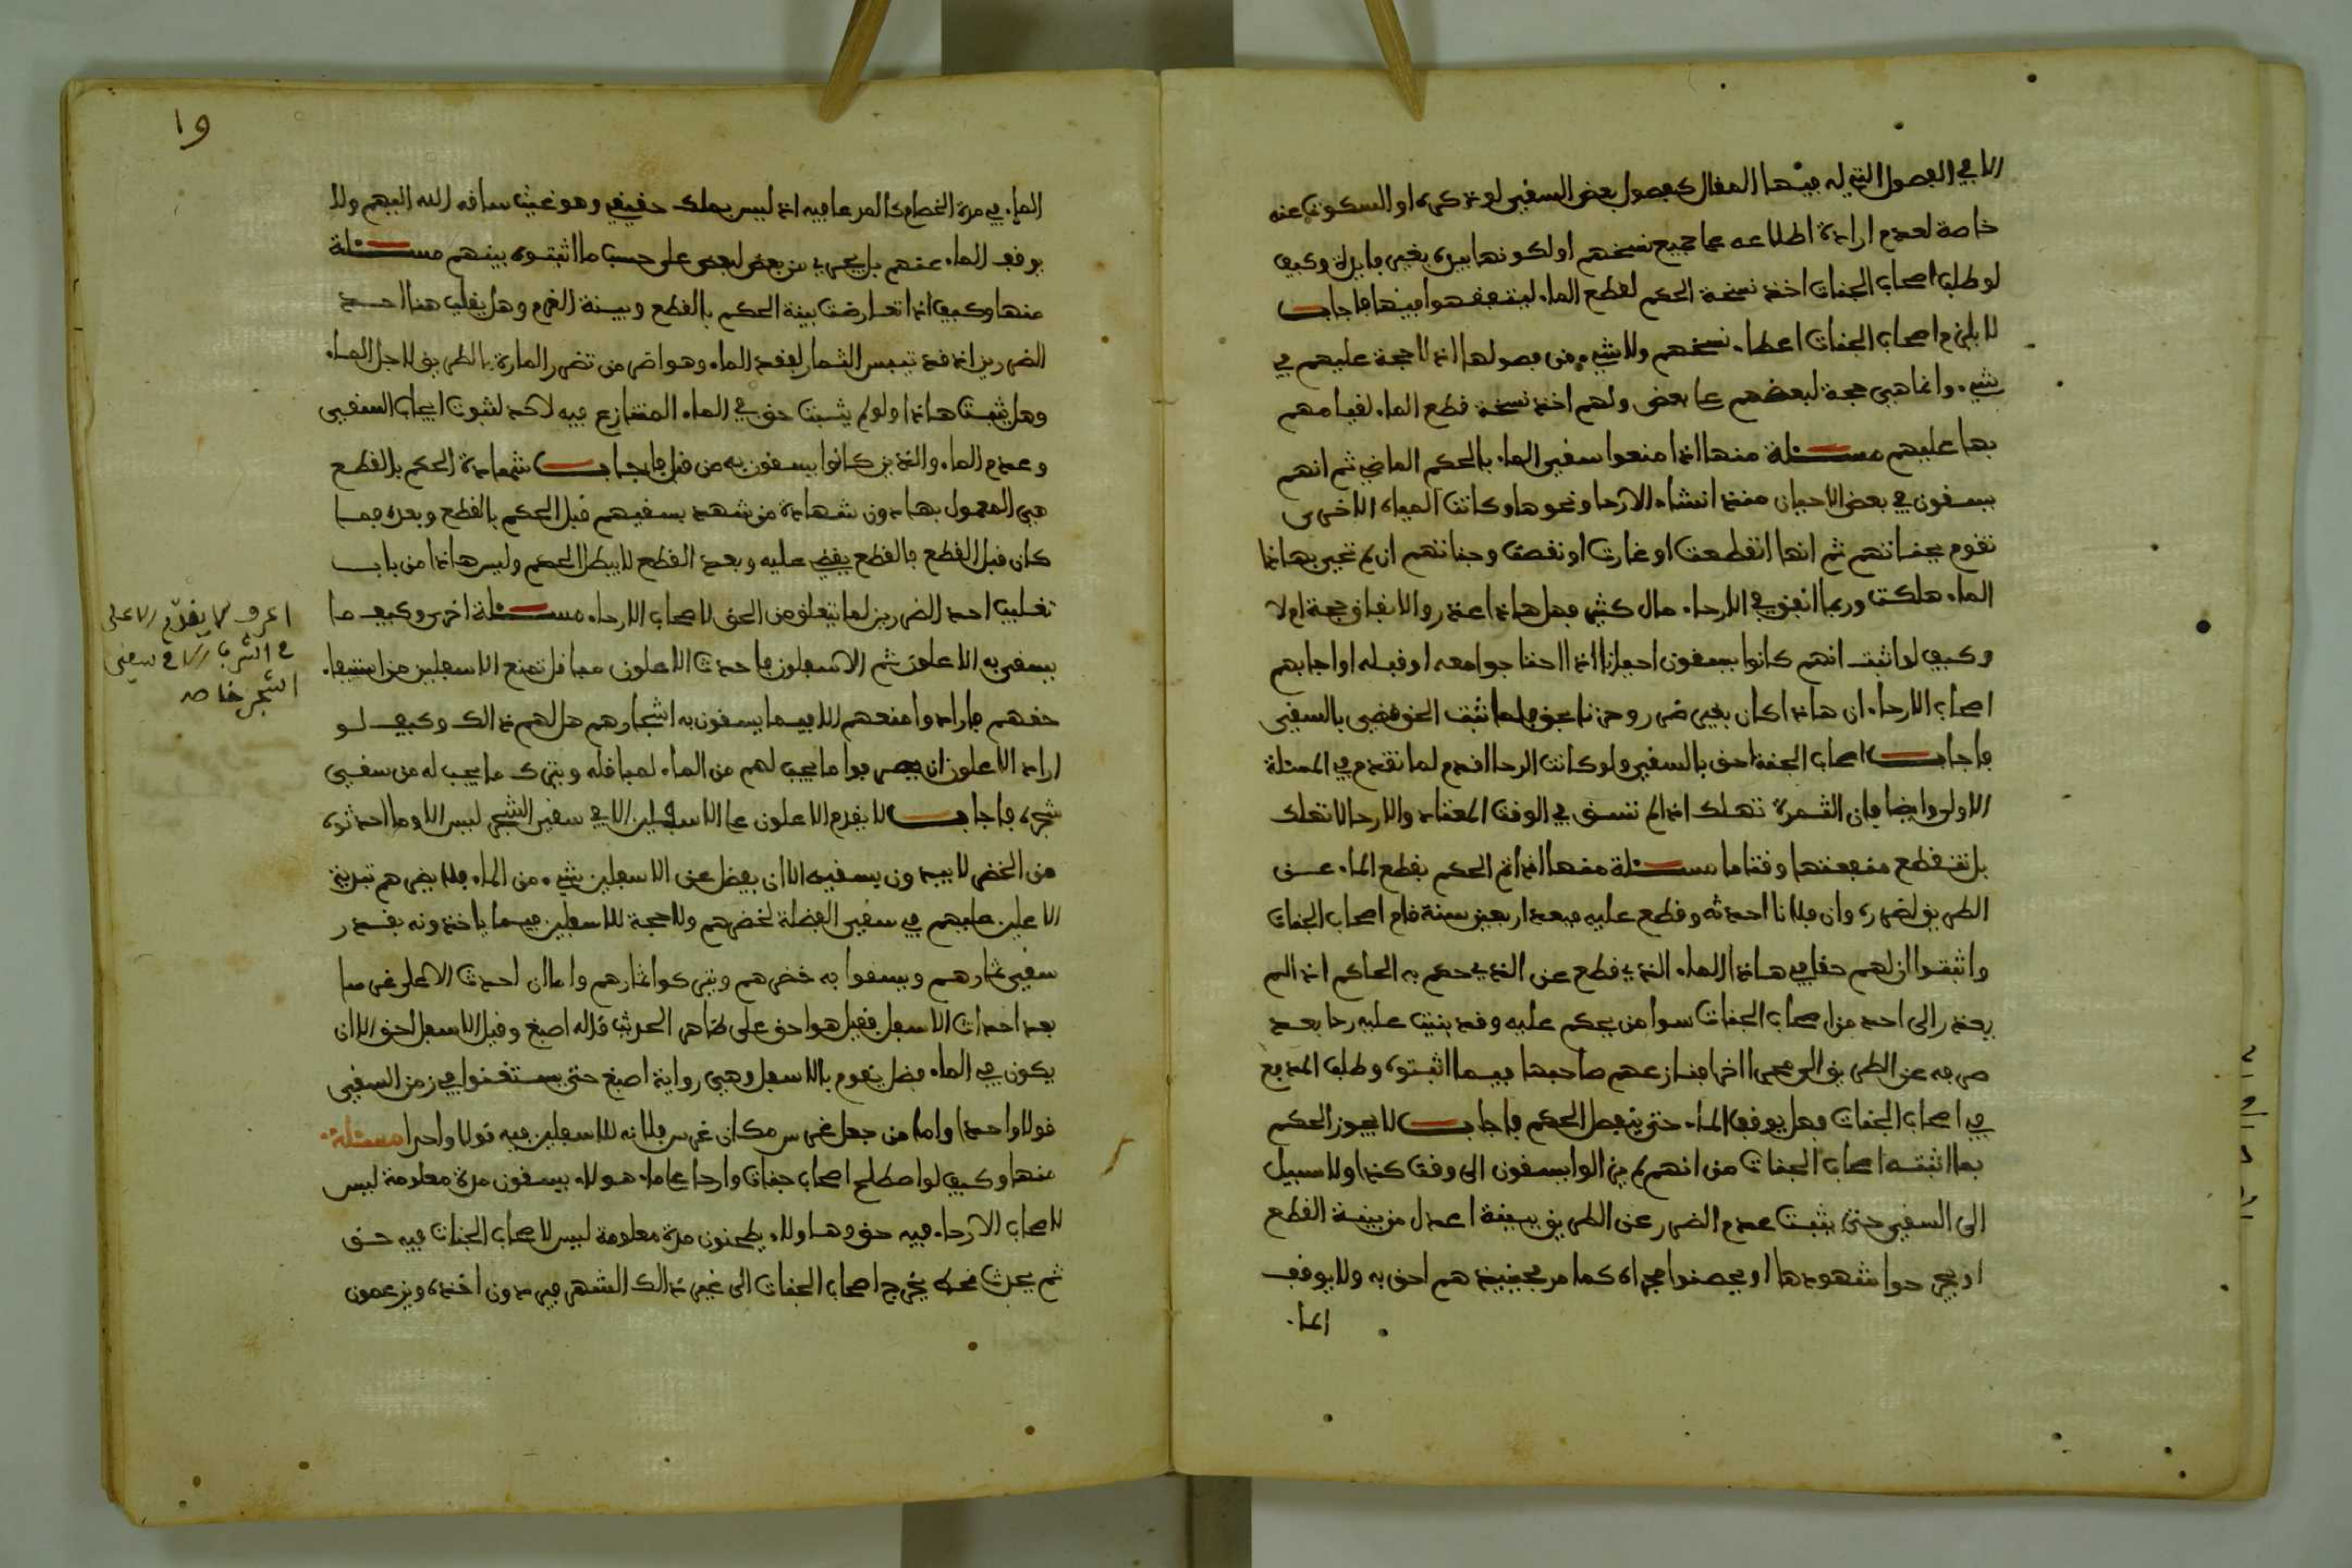 الا في الفصول التي له فيها المقال كفصول بعض السقي لو تركه او السكوت عنه
خاصة لعدم ارادة اطلاعه عما جميع نسخهم او لكونها بيده بغير فايدة وكيف
لو طلب اصحاب الجنات اخذ نسخة الحكم لقطع الماء ليتفقهوا فيها فاجاب
لا يلزم اصحاب الجنات اعطاء نسخهم ولا شيء من فصولها اذ لا حجة عليهم في
شيء وانما هي حجة لبعضهم على بعض ولهم اخذ نسخة قطع الماء لقيامهم
بها عليهم مسئلة منها اذا منعوا سقي الماء بالحكم الماضي ثم انهم
يسقون في بعض الاحيان منذ انشاء الارحا ونحوها وكانت المياه الاخرى
تقوم بجناتهم ثم انها انقطعت او غارت او نقصت وجناتهم ان لم تحيى بهاذا
الماء هلكت وربما انفق في الارحاء مال كثير فهل هاذا عذر والانفاق حجة ام لا
وكيف لو اثبت انهم كانوا يسقون احيانا اذا احتاجوا معه او قبله او اجابهم
اصحاب الارحاء ان هاذا كان بغير ضرر وحزنا بحق فلما ثبت الحق قضى بالسقي
فاجاب اصحاب الجنة احق بالسقي ولو كانت الرحا اقدم لما تقدم في المسئلة
الاولى وايضا فان الثمرة تهلك اذا لم تسق في الوقت المعتاد والارحا لا تهلك
بل تنقطع منفعتها وقتا ما مسئلة منها اذا تم الحكم بقطع الماء عن
الطريق لضرره وان فلانا احدثه وقطع عليه فبعد اربعين سنة قام اصحاب الجنات
واثبتوا ان لهم حقا في هاذا الماء الذي قطع عن الذي حكم به الحاكم اذ لم
يعذر الى احد من اصحاب الجنات سوا من يحكم عليه وقد بنيت عليه رحا بعد
صرفه عن الطريق الى مجرى اخر فنازعهم صاحبها فيما اثبتوه وطلب المدفع
في اصحاب الجنات وهل يوقف الماء حتى ينفصل الحكم فاجاب لا يجوز الحكم
بما اثبته اصحاب الجنات من انهم لم يزالوا يسقون الى وقت كذا ولا سبيل
الى السقي حتى يثبت عدم الضرر عن الطريق ببينة اعدل من بينة القطع
او يجرحوا شهودها او يحصنوا مجراه كما مر فحينئذ هم احق به ولا يوقف
الماء
١٩
الماء في مدة الخصام كالمرعا فيه اذ ليس بملك حقيقي وهو غيث ساقه الله اليهم ولا
يوقف الماء عنهم بل يجري من بعض لبعض على حسب ما اثبتوه بينهم مسئلة
منها وكيف اذا تعارضت بينة الحكم بالقطع وبينة الغرم وهل يغلب هنا احد
الضررين اذ قد تيبس الثمار لفقد الماء وهو اضر من تضرر المارة بالطريق لاجل الماء
وهل يثبت هاذا ولو لم يثبت حق في الماء المتنازع فيه لاكد لثبوت ايجاب السقي
وعدم الماء والذين كانوا يسقون به من قبل فاجاب شهادة الحكم بالقطع
هي المعمول بها دون شهادة من شهد بسقيهم قبل الحكم بالقطع وبعده فما
كان قبل القطع فالقطع يقضي عليه وبعد القطع لا يبطل الحكم وليس هاذا من باب
تغليب احد الضررين لما يتعلق من الحق لاصحاب الارحاء مسئلة اخرى وكيف ما
يسقي به الاعلون ثم الاسفلون فاحدث الاعلون مباقل تمنع الاسفلين من استيفاء
حقهم فارادوا منعهم الا فيما يسقون به اشجارهم هل لهم ذالك وكيف لو
اراد الاعلون ان يصرفوا ما يجب لهم من الماء لمباقله ويترك ما يجب له من سقي
شجره فاجاب لا يقدم الاعلون على الاسفلين الا في سقي الشجر ليس الا وما احدثوه
من الخضر لا يبدون بسقيه الا ان يفضل عن الاسفلين شيء من الماء فلا يضرهم تبدية
الاعلين عليهم في سقي الفضلة لخضرهم ولا حجة للاسفلين فيما ياخذونه بقدر
سقي ثمارهم ويسقوا به خضرهم ويتركوا ثمارهم واما ان احدث الاعلى غرسا
بعد احداث الاسفل فقيل هو احق على ظاهر الحديث قاله اصبغ وقيل الاسفل احق الا ان
يكون في الماء فضل يقوم بالاسفل وهي رواية اصبغ حتى يستغنوا في زمن السقي
قولا واحدا واما من جعل غرس مكان غرس فلا انه للاسفلين فيه قولا واحدا مسئلة
منها وكيف لو اصطلح اصحاب جنات وارحا على ماء هولاء يسقون مدة معلومة ليس
لاصحاب الارحاء فيه حق وهاولاء يطحنون مدة معلومة ليس لاصحاب الجنات فيه حق
ثم يحدث قحط يخرج اصحاب الجنات الى غير ذالك الشهر فيريدون اخذه ويزعمون
اعرف لا يقدم الاعلى
في الشرب الا في سقي
الشجر خاصة